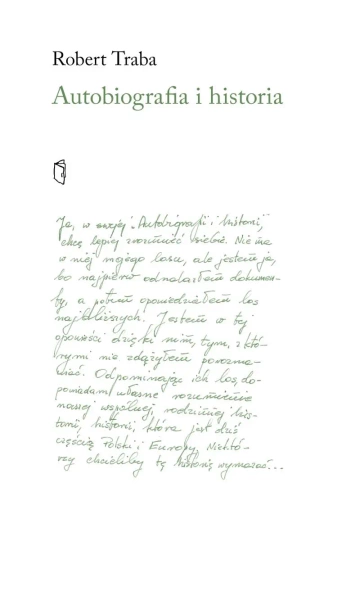 Robert Traba
Autobiografia i historia
Ja, w swojej „Autobiografii i historii”,
chcę lepiej zrozumieć siebie. Nie ma
w niej mojego losu, ale jestem ja,
bo najpierw odnalazłem dokumen-
ty, a potem opowiedziałem los
najbliższych. Jestem w tej
opowieści dzięki nim, tym, z któ-
rymi nie zdążyłem porozma-
wiać. Odpominając ich los, do-
powiadam własne rozumienie
naszej wspólnej, rodzinnej his-
torii, historii, która jest dziś
częścią Polski i Europy. Niektó-
rzy chcieliby tę historię wymazać...